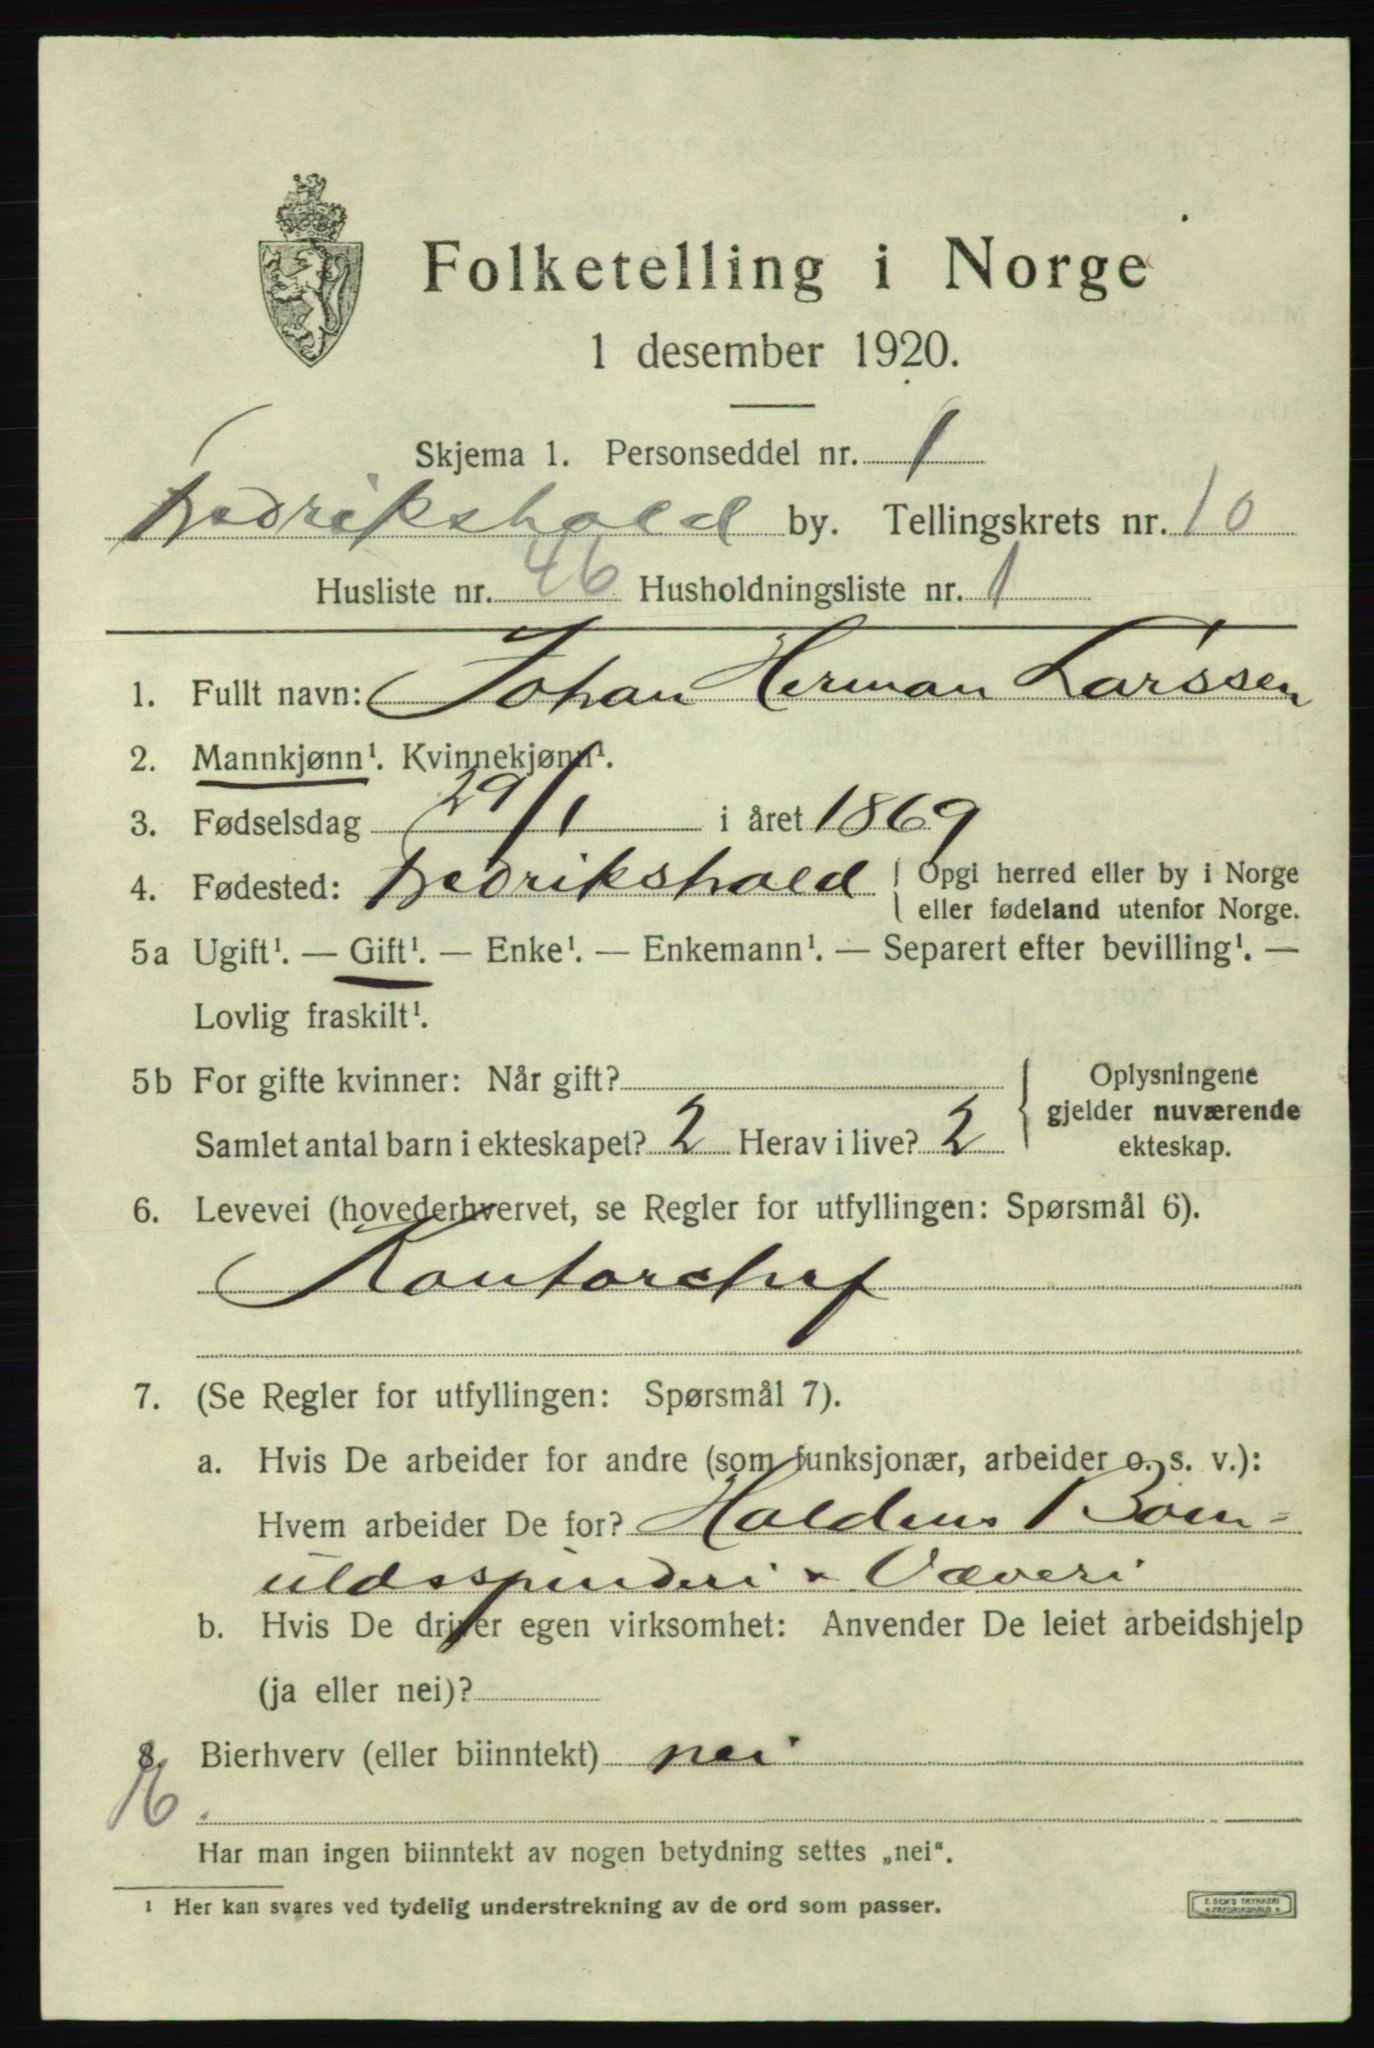 Folketelling i Norge
1 desember 1920.
Skjema 1. Personseddel nr. 1
Fredrikshald by. Tellingskrets nr. 10
Husliste nr. 46 Husholdningsliste nr. 1
1. Fullt navn: Johan Herman Larssen
2. Mannkjønn¹. Kvinnekjønn¹.
3. Fødselsdag 29/1 i året 1869
4. Fødested: Fredrikshald { Opgi herred eller by i Norge
eller fødeland utenfor Norge.
5a Ugift¹. — Gift¹. — Enke¹. — Enkemann¹. — Separert efter bevilling¹. —
Lovlig fraskilt¹.
5b For gifte kvinner: Når gift? { Oplysningene
gjelder nuværende
Samlet antal barn i ekteskapet? 2 Herav i live? 2 ekteskap.
6. Levevei (hovederhvervet, se Regler for utfyllingen: Spørsmål 6).
Kontorchef
7. (Se Regler for utfyllingen: Spørsmål 7).
a. Hvis De arbeider for andre (som funksjonær, arbeider o. s. v.):
Hvem arbeider De for? Haldens Bom-
uldsspinderi & Væveri
b. Hvis De driver egen virksomhet: Anvender De leiet arbeidshjelp
(ja eller nei)?
8. Bierhverv (eller biinntekt) nei
Har man ingen biinntekt av nogen betydning settes „nei“.
¹ Her kan svares ved tydelig understrekning av de ord som passer.
E. SEM'S TRYKKERI
* FREDRIKSHALD *